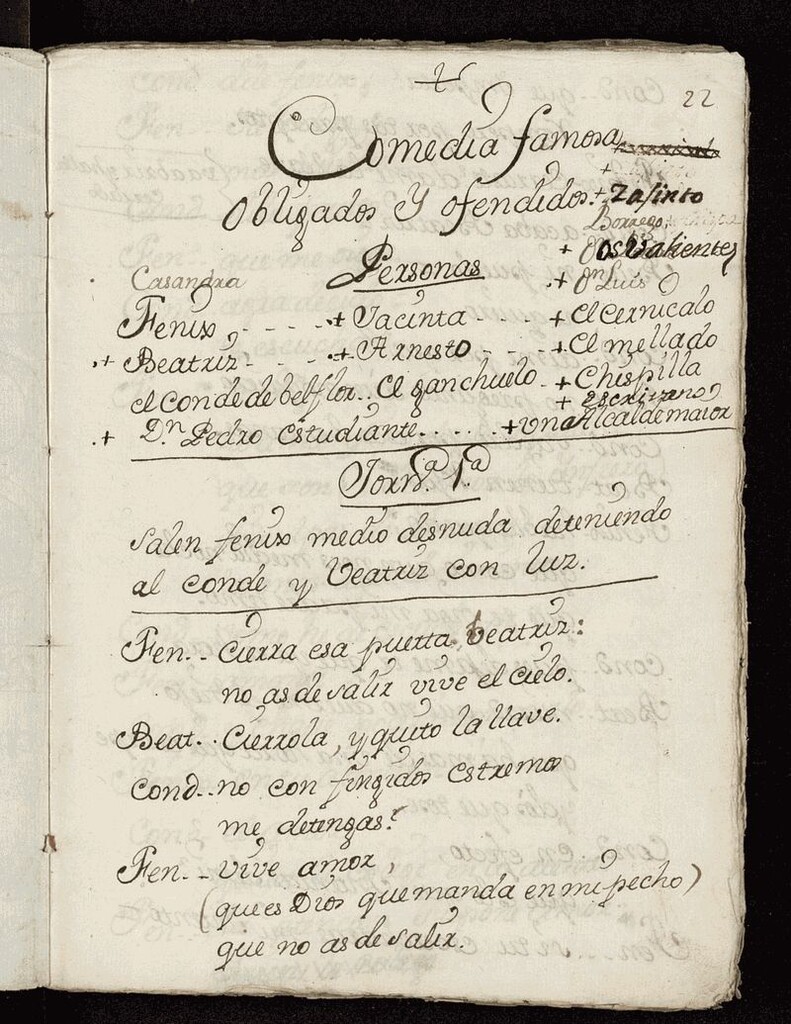 22
Comedia famosa
obligados y ofendidos.
+ Zasinto
Borrego
+ os Valientes
Casandra Personas + Dn Luis
Fenix - - - - .+ Jacinta - - - - + el Cernicalo
.+ Beatriz - - - - .+ Arnesto - - - - +el mellado
el Conde de belflor.. el ganchuelo - + Chispilla
+ escrivano
.+ Dn. Pedro estudiante. . . . . . +un Alcalde maior
Jornda. 1.a
salen fenix medio desnuda deteniendo
al conde y Veatriz con luz.
Fen.- Cierra esa puerta beatriz:
no as de salir vive el cielo.
Beat.. Cierrola, y quito la llave.
Cond.. no con fingidos estremos
me detengas!
Fen.-- vive amor,
(que es Dios que manda en mi pecho)
que no as de salir.